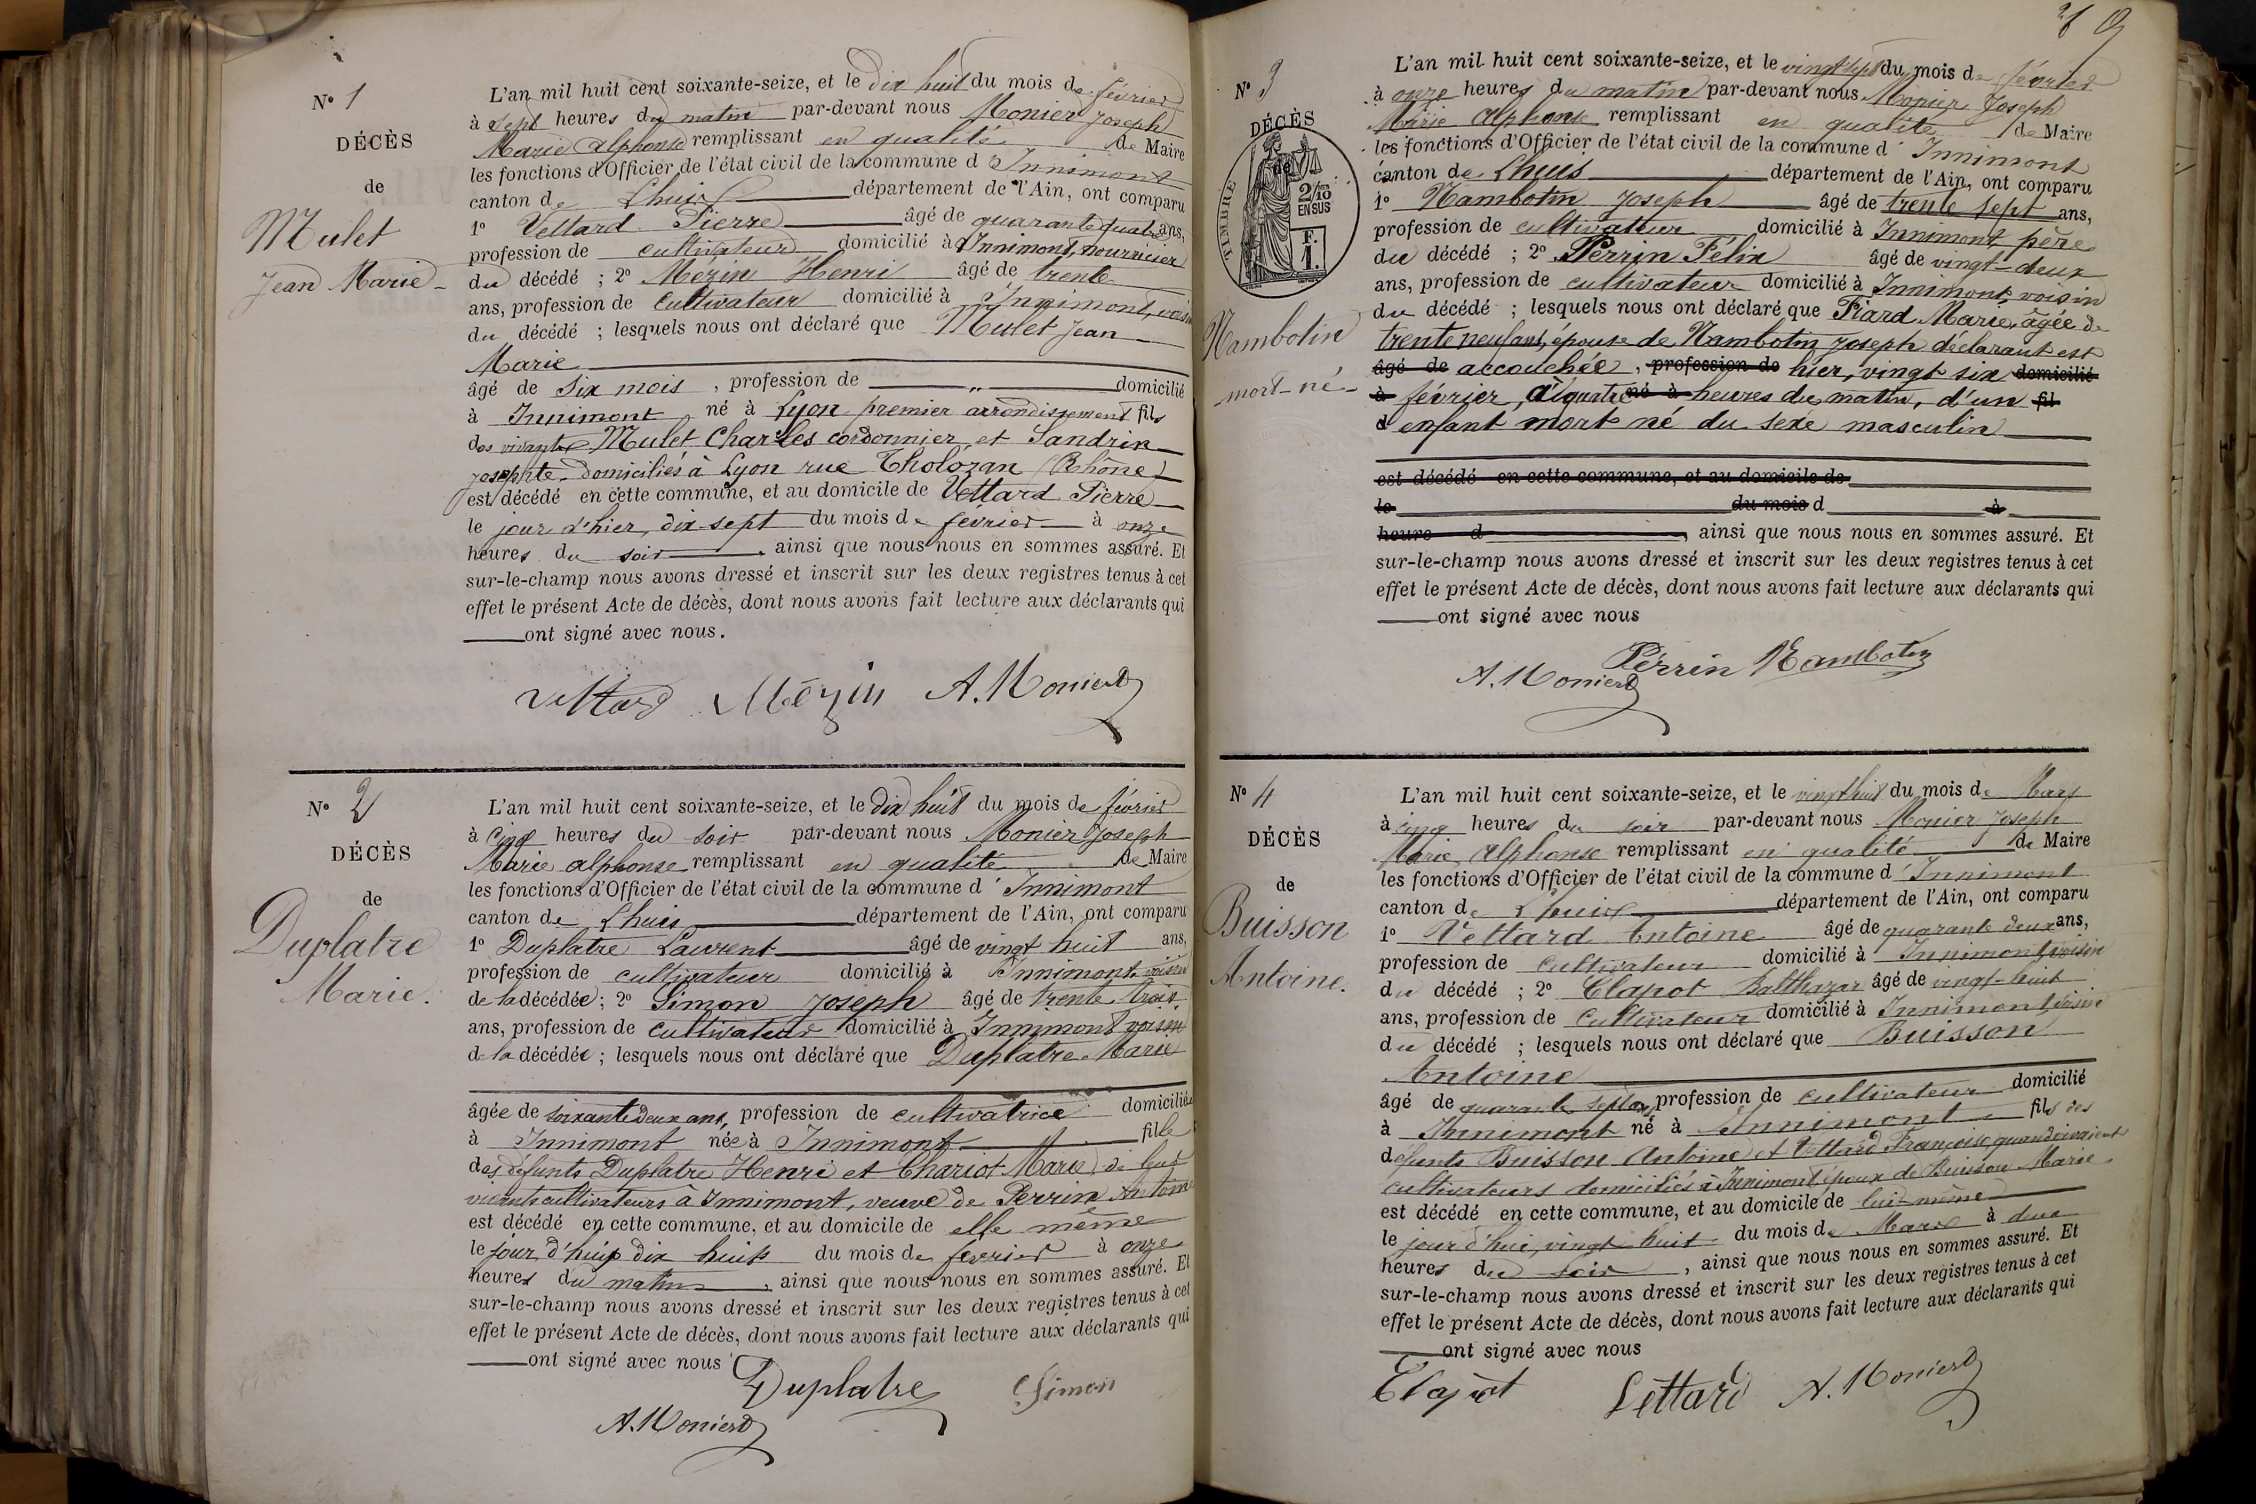 N° 1
DÉCÈS
de
Mulet
Jean Marie
L'an mil huit cent soixante-seize, et le dix huit du mois de février
à sept heures du matin par-devant nous Monier Joseph
Marie Alphonse remplissant en qualité de Maire
les fonctions d'Officier de l'état civil de la commune d'Innimont
canton de Lhuis département de l'Ain, ont comparu
1° Vettard Pierre âgé de quarante quatre ans,
profession de cultivateur domicilié à Innimont, nourricier
du décédé ; 2° Mézin Henri âgé de trente
ans, profession de cultivateur domicilié à Innimont, voisin
du décédé ; lesquels nous ont déclaré que Mulet Jean
Marie
âgé de six mois, profession de " domicilié
à Innimont né à Lyon premier arrondissement fils
des vivants Mulet Charles cordonnier, et Sandrin
Josephte domiciliés à Lyon rue Tholozan (Rhône)
est décédé en cette commune, et au domicile de Vettard Pierre
le jour d'hier, dix-sept du mois de février à onze
heures du soir, ainsi que nous nous en sommes assuré. Et
sur-le-champ nous avons dressé et inscrit sur les deux registres tenus à cet
effet le présent Acte de décès, dont nous avons fait lecture aux déclarants qui
ont signé avec nous.
Vettard Mézin A. Monier
N° 2
DÉCÈS
de
Duplatre
Marie.
L'an mil huit cent soixante-seize, et le dix huit du mois de février
à cinq heures du soir par-devant nous Monier Joseph
Marie Alphonse remplissant en qualité de Maire
les fonctions d'Officier de l'état civil de la commune d'Innimont
canton de Lhuis département de l'Ain, ont comparu
1° Duplatre Laurent âgé de vingt huit ans,
profession de cultivateur domicilié à Innimont voisin
de la décédée ; 2° Simon Joseph âgé de trente trois
ans, profession de cultivateur domicilié à Innimont voisin
de la décédée ; lesquels nous ont déclaré que Duplatre Marie
âgée de soixante deux ans, profession de cultivatrice domiciliée
à Innimont née à Innimont fille
des défunts Duplatre Henri et Chariot Marie de leur
vivant cultivateurs à Innimont, veuve de Perrin Antoine
est décédé en cette commune, et au domicile de elle même
le jour d'hui dix huit du mois de février à onze
heures du matin, ainsi que nous nous en sommes assuré. Et
sur-le-champ nous avons dressé et inscrit sur les deux registres tenus à cet
effet le présent Acte de décès, dont nous avons fait lecture aux déclarants qui
ont signé avec nous
Duplatre Simon
A. Monier
N° 3
DÉCÈS
de
TIMBRE
2/10
EN SUS
F.
1.
Nambotin
mort-né
L'an mil huit cent soixante-seize, et le vingt sept du mois de février
à onze heures du matin par-devant nous Monier Joseph
Marie Alphonse remplissant en qualité de Maire
les fonctions d'Officier de l'état civil de la commune d'Innimont
canton de Lhuis département de l'Ain, ont comparu
1° Nambotin Joseph âgé de trente sept ans,
profession de cultivateur domicilié à Innimont père
du décédé ; 2° Perrin Félix âgé de vingt-deux
ans, profession de cultivateur domicilié à Innimont, voisin
du décédé ; lesquels nous ont déclaré que Fiard Marie, âgée de
trente neuf ans, épouse de Nambotin Joseph déclarant est
âgé de accouchée, profession de hier, vingt six domicilié
à février, à quatre né à heures du matin, d'un fil
d enfant mort né du sexe masculin
est décédé en cette commune, et au domicile de
le du mois d à
heure d, ainsi que nous nous en sommes assuré. Et
sur-le-champ nous avons dressé et inscrit sur les deux registres tenus à cet
effet le présent Acte de décès, dont nous avons fait lecture aux déclarants qui
ont signé avec nous
Perrin Nambotin
A. Monier
N° 4
DÉCÈS
de
Buisson
Antoine.
L'an mil huit cent soixante-seize, et le vingt huit du mois de Mars
à cinq heures du soir par-devant nous Monier Joseph
Marie Alphonse remplissant en qualité de Maire
les fonctions d'Officier de l'état civil de la commune d'Innimont
canton de Lhuis département de l'Ain, ont comparu
1° Vettard Antoine âgé de quarante deux ans,
profession de cultivateur domicilié à Innimont voisin
du décédé ; 2° Clapot Balthazar âgé de vingt-huit
ans, profession de cultivateur domicilié à Innimont voisin
du décédé ; lesquels nous ont déclaré que Buisson
Antoine
âgé de quarante sept ans, profession de cultivateur domicilié
à Innimont né à Innimont fils des
defunts Buisson Antoine et Vettard Françoise quand vivaient
cultivateurs domiciliés à Innimont époux de Buisson Marie
est décédé en cette commune, et au domicile de lui-même
le jour d'hui, vingt huit du mois de Mars à deux
heures du soir, ainsi que nous nous en sommes assuré. Et
sur-le-champ nous avons dressé et inscrit sur les deux registres tenus à cet
effet le présent Acte de décès, dont nous avons fait lecture aux déclarants qui
ont signé avec nous
Clapot Vettard A. Monier